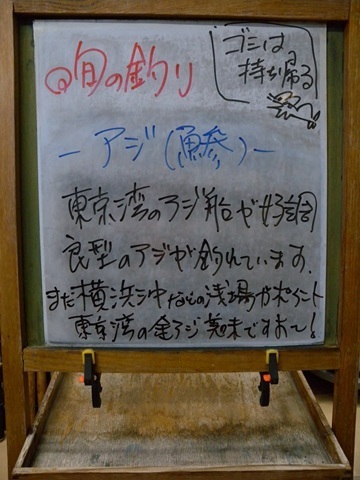 ◎旬の釣り
ゴミは
持ち帰る
－アジ(鯵)－
東京湾のアジ船が好調
良型のアジが釣れています。
まだ横浜沖などの浅場がポイント
東京湾の金アジ美味ですよ～!